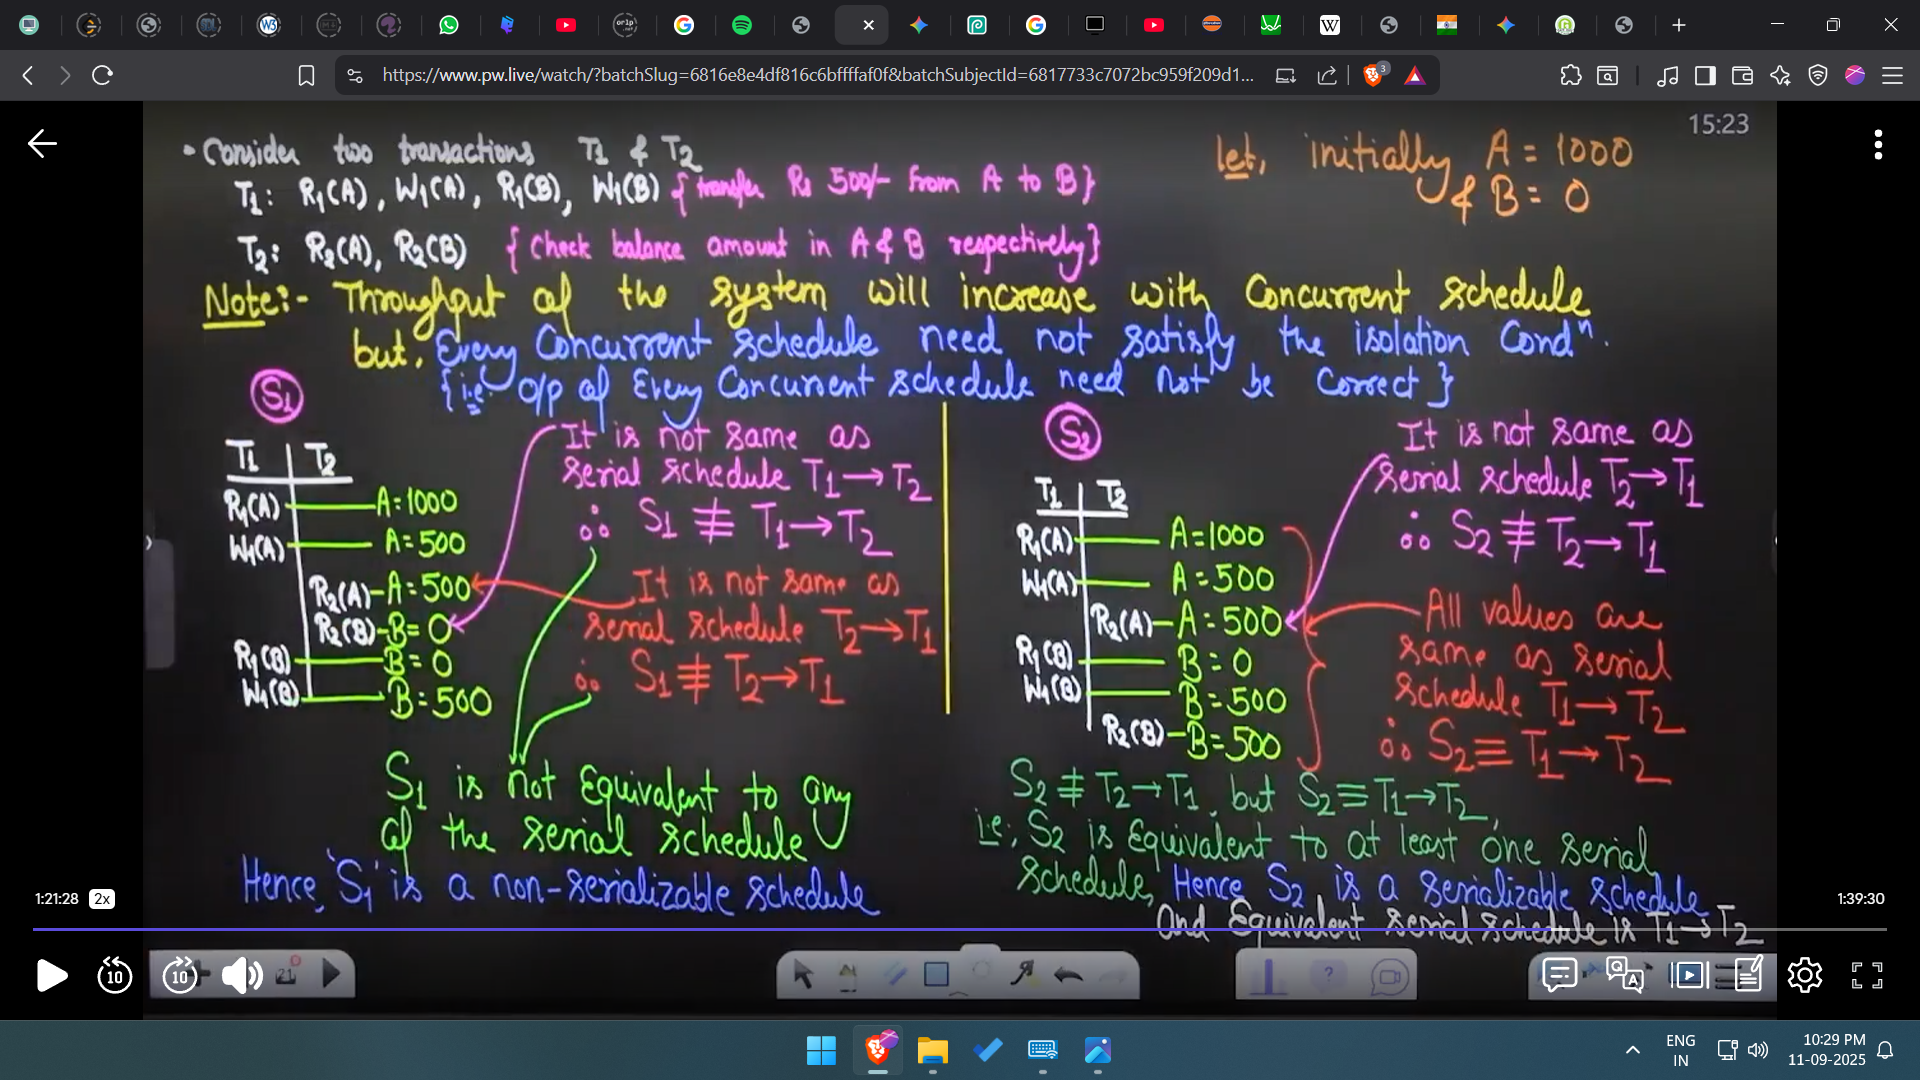 https://www.pw.live/watch/?batchSlug=6816e8e4df816c6bffffaf0f&batchSubjectId=6817733c7072bc959f209d1...
3
15:23
• Consider two transactions T1 & T2
T1: R1(A), W1(A), R1(B), W1(B) {transfer Rs 500/- from A to B}
T2: R2(A), R2(B) {Check balance amount in A & B respectively}
let, initially A = 1000
& B = 0
Note:- Throughput of the system will increase with Concurrent schedule
but, Every Concurrent schedule need not satisfy the isolation Condⁿ.
{i.e. o/p of Every Concurrent schedule need not be Correct}
S1
T1 T2
R1(A) A=1000
W1(A) A=500
R2(A) A=500
R2(B) B=0
R1(B) B=0
W1(B) B=500
It is not same as
serial schedule T1→T2
∴ S1 ≢ T1→T2
It is not same as
serial schedule T2→T1
∴ S1 ≢ T2→T1
S1 is not Equivalent to any
of the serial schedule
Hence, 'S1' is a non-serializable schedule
S2
T1 T2
R1(A) A=1000
W1(A) A=500
R2(A) A=500
R1(B) B=0
W1(B) B=500
R2(B) B=500
It is not same as
serial schedule T2→T1
∴ S2 ≢ T2→T1
All values are
same as serial
schedule T1→T2
∴ S2 ≡ T1→T2
S2 ≢ T2→T1, but S2 ≡ T1→T2,
i.e., S2 is Equivalent to at least one serial
schedule, Hence S2 is a serializable schedule
And Equivalent serial schedule is T1→T2
1:21:28 2x
1:39:30
10
10
21
ENG
IN
10:29 PM
11-09-2025